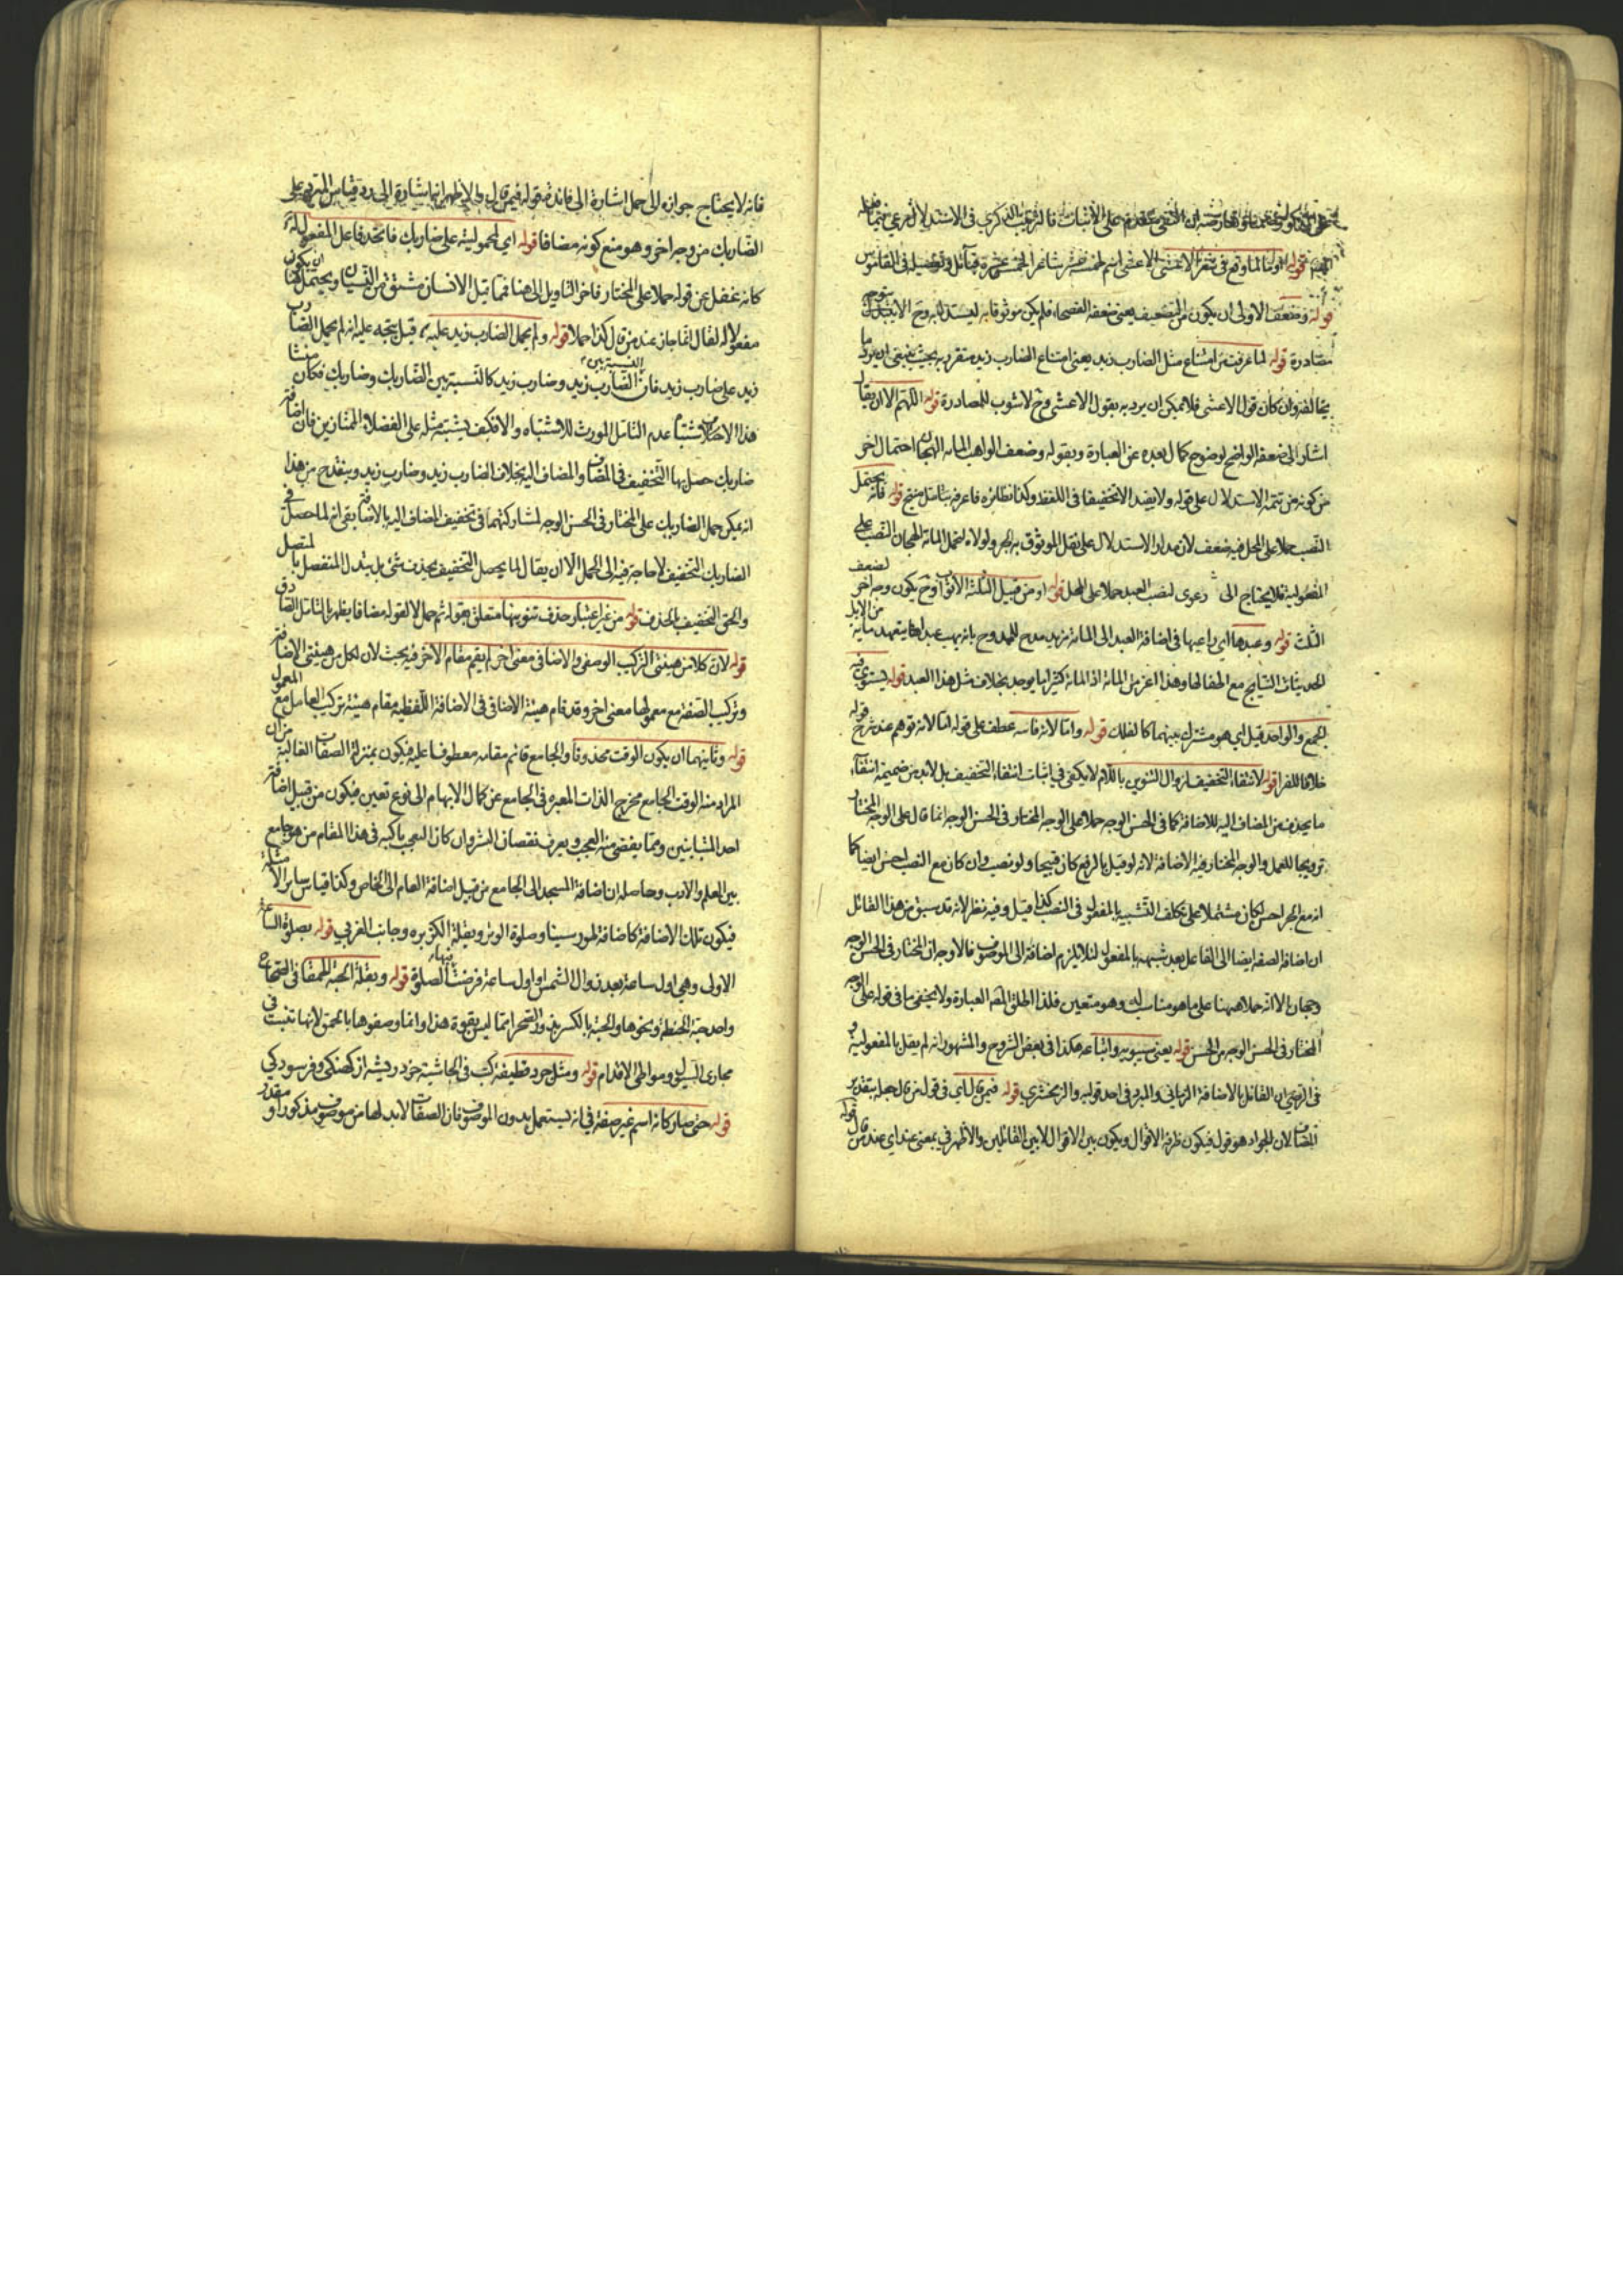 على الاثبات فالترتيب الذكري في الاستدلال
قوله واما لما وقع في شعر الاعشى الاعشى اسم لخمسة عشر شاعرا لخمس عشرة قبائل وتفصيله في القاموس
قوله وضعف الاولى ان يكون من التضعيف يعني ضعفه الفصحاء فلم يكن موثوقا به ليستدل به وح لا يتجه
مصادرة قوله لما عرفت من امتناع مثل الضارب زيد يعني امتناع الضارب زيد متقرر بحيث ينبغي ان يرد ما
يخالفه وان كان قول الاعشى فلا يمكن ان يرد به بقول الاعشى وح لا شوب للمصادرة قوله اللهم الا ان يقال
اشار الى ضعفه الواضح لوضوح كمال بعده عن العبارة وبقوله وضعف الواهب المائة الهجان احتمال اخر
من كونه من تتمة الاستدلال على قوله ولا يفيد الا تخفيفا في اللفظ وكذا نظائره فاعرفه بتأمل قوله فانه يحتمل
النصب حملا على المحل فيه ضعف لان مدار الاستدلال على نقل الموثوق به الجر ولولاه لتحمل المائة الهجان النصب على
المفعولية فلا يحتاج الى دعوى لنصب العبد حملا على المحل قوله او من قبيل الثلثة الاثواب وح يكون وجه اخر لضعف
الثلث قوله وعبدها اي راعيها في اضافة العبد الى المائة مزيد مدح للممدوح بانه يهب عبدا يتعهد مائة من الابل
الحديثات النتايج مع اطفالها وهذا اعز من المائة اذ المائة كثيرا ما يوجد بخلاف مثل هذا العبد قوله يستوي فيه
الجمع والواحد قيل اي هو مشترك بينهما كالفلك قوله واما لانه قاسه عطف على قوله اما لانه توهم عند شرح قوله
خلافا للفراء قوله لانتفاء التخفيف لزوال التنوين باللام لا يكفي في اثبات انتفاء التخفيف بل لابد من ضميمة انتفاء
ما يحذف من المضاف اليه للاضافة كما في الحسن الوجه حملا على الوجه المختار في الحسن الوجه انما قال على الوجه المختار
ترويجا للعمل والوجه المختار فيه الاضافة لانه لو قيل بالرفع كان قبيحا ولو نصب وان كان مع النصب احسن ايضا كما
انه مع الجر احسن لكان مشتملا على تكلف التشبيه بالمفعول في النصب كذا قيل وفيه نظر لانه قد سبق من هذا القائل
ان اضافة الصفة ايضا الى الفاعل بعد شبهه بالمفعول لئلا يلزم اضافة الى الموصوف فالاوجه ان المختار في الحسن الوجه
وجهان الا انه حملا ههنا على ما هو مناسب له وهو متعين فلذا اطلق العبارة ولا يخفى ما في قوله على الوجه
المختار في الحسن الوجه من الحسن قوله يعني سيبويه واتباعه هكذا في بعض الشروح والمشهور انه لم يقل بالمفعولية و
في الرضي ان القائل بالاضافة الرماني والمبرد في احد قوليه والزمخشري قوله فيمن قال اي في قول من قال جعله بتقدير
المضاف لان للجواد هو قول فيكون ظرفه الاقوال ويكون بين الاقوال لا بين القائلين والاظهر في بمعنى عند اي عند من قال قوله
فانه لا يحتاج جوازه الى حمل اشارة الى فائدة قوله فيمن قال والاظهر انها اشارة الى رد قياس المبرد على
الضاربك من وجه اخر وهو منع كونه مضافا قوله اي لمحموليته على ضاربك فاتحد فاعل المفعول له
كانه غفل عن قوله حملا على المختار فاخر التاويل الى هنا فما قبل الانسان مشتق من النسيان ويحتمل ان يكون
مفعولا له لقال انما جاز عند من قال كذا حملا قوله ولم يحمل الضارب زيد عليه قيل يتجه عليه انه لم يحمل الضارب
زيد على ضارب زيد فان النسبة بين الضارب زيد وضارب زيد كالنسبة بين الضاربك وضاربك فكان منشأ
هذا الاحتمال اشتباه عدم التامل المورث للاشتباه والا فكيف يشتبه مثله على الفضلاء الممتازين فان اضافة
ضاربك حصل بها التخفيف في المضاف والمضاف اليه بخلاف الضارب زيد وضارب زيد وينقدح من هذا
انه يمكن حمل الضاربك على المختار في الحسن الوجه لمشاركتهما في تخفيف المضاف اليه بالاضافة بقي انه لما حصل في
الضاربك التخفيف لا حاجة فيه الى الحمل الا ان يقال لما يحصل التخفيف بحذف شئ بل بتبدل المنفصل بالمتصل
والحق التخفيف بالحذف قوله من غير اعتبار حذف تنوينها متعلق بقوله ثم حملا لا لقوله مضافا يظهر بالتامل الصادق
قوله لان كلا من هيئتي التركيب الوصفي والاضافي معنى اخر لم يقم مقام الاخر فيه بحث لان لكل من هيئتي الاضافة
وتركيب الصفة مع معمولها معنى اخر وقد قام هيئة الاضافي في الاضافة اللفظية مقام هيئة تركيب العامل مع المعمول
قوله وثانيهما ان يكون الوقت محذوفا والجامع قائم مقامه معطوفا عليه فيكون بمنزلة الصفات الغالبة من ان
المراد منه الوقت الجامع مخرج الذات المعبرة في الجامع عن كمال الابهام الى نوع تعين فيكون من قبيل اضافة
احد المتباينين ومما يفضي منه العجب ويعرف نقصان البشر وان كان النعجب باكبه في هذا المقام من هو جامع
بين العلم والادب وحاصله ان اضافة المسجد الى الجامع من قبيل اضافة العام الى الخاص وكذا قياس ساير الامثلة
فيكون تلك الاضافة كاضافة طور سينا وصلوة الوتر وبقلة الكزبرة وجانب الغربي قوله بصلوة الساعة
الاولى وهي اول ساعة بعد زوال الشمس او اول ساعة فرضت فيها الصلوة قوله وبقلة الحبة الحمقاء في الصحاح
واحد حبة الحنطة ونحوها والحبة بالكسر بزور الصحراء مما ليس بقوة هذا وانما وصفوها بالحمق لانها تنبت في
مجاري السيول ومواطئ الاقدام قوله ومثل جرد قطيفة كتب في الحاشية خرد ريشه از كهنكي وفرسودكي
قوله حتى صار كانه اسم غير صفة في انه يستعمل بدون الموصوف فان الصفات لابد لها من موصوف مذكور او مقدر